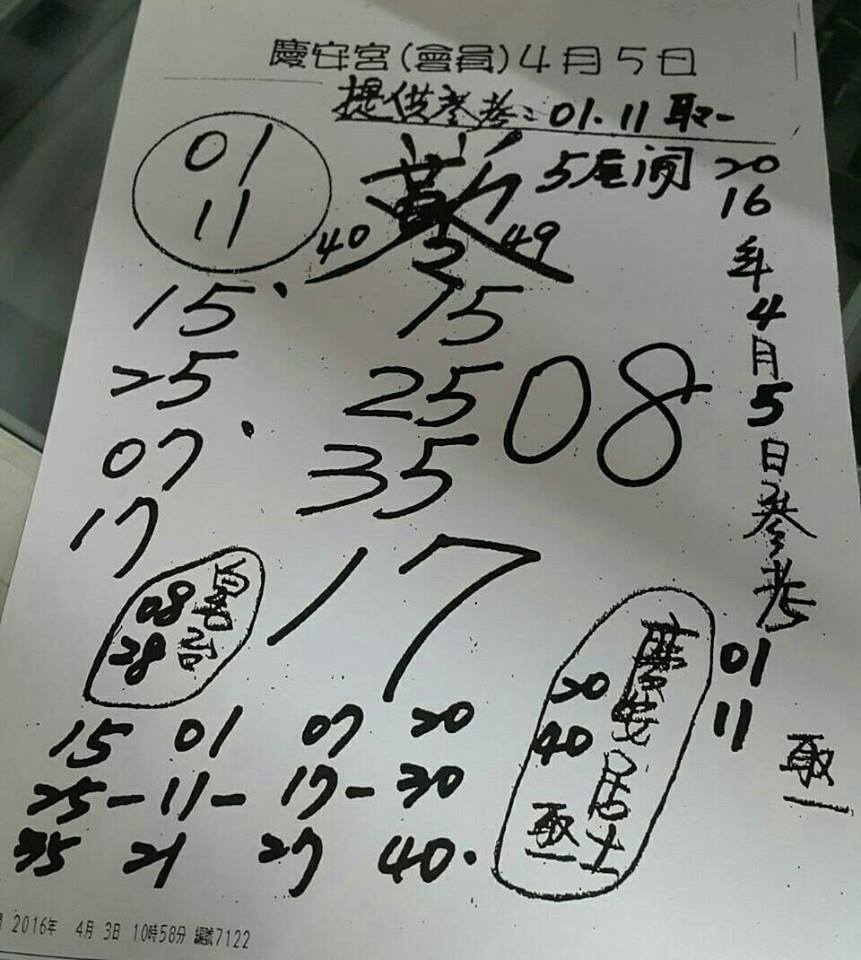 慶安宮(會員)4月5日
提供參考：01.11取一
01
11
40
49
5尾開
15
25
07
17
15
25
35
08
17
2016年4月5日參考
01
11
取一
08
28
慶安居士
20
40
取一
15 01 07 20
25-11-17-30
35 21 27 40.
2016年 4月 3日 10時58分 編號7122